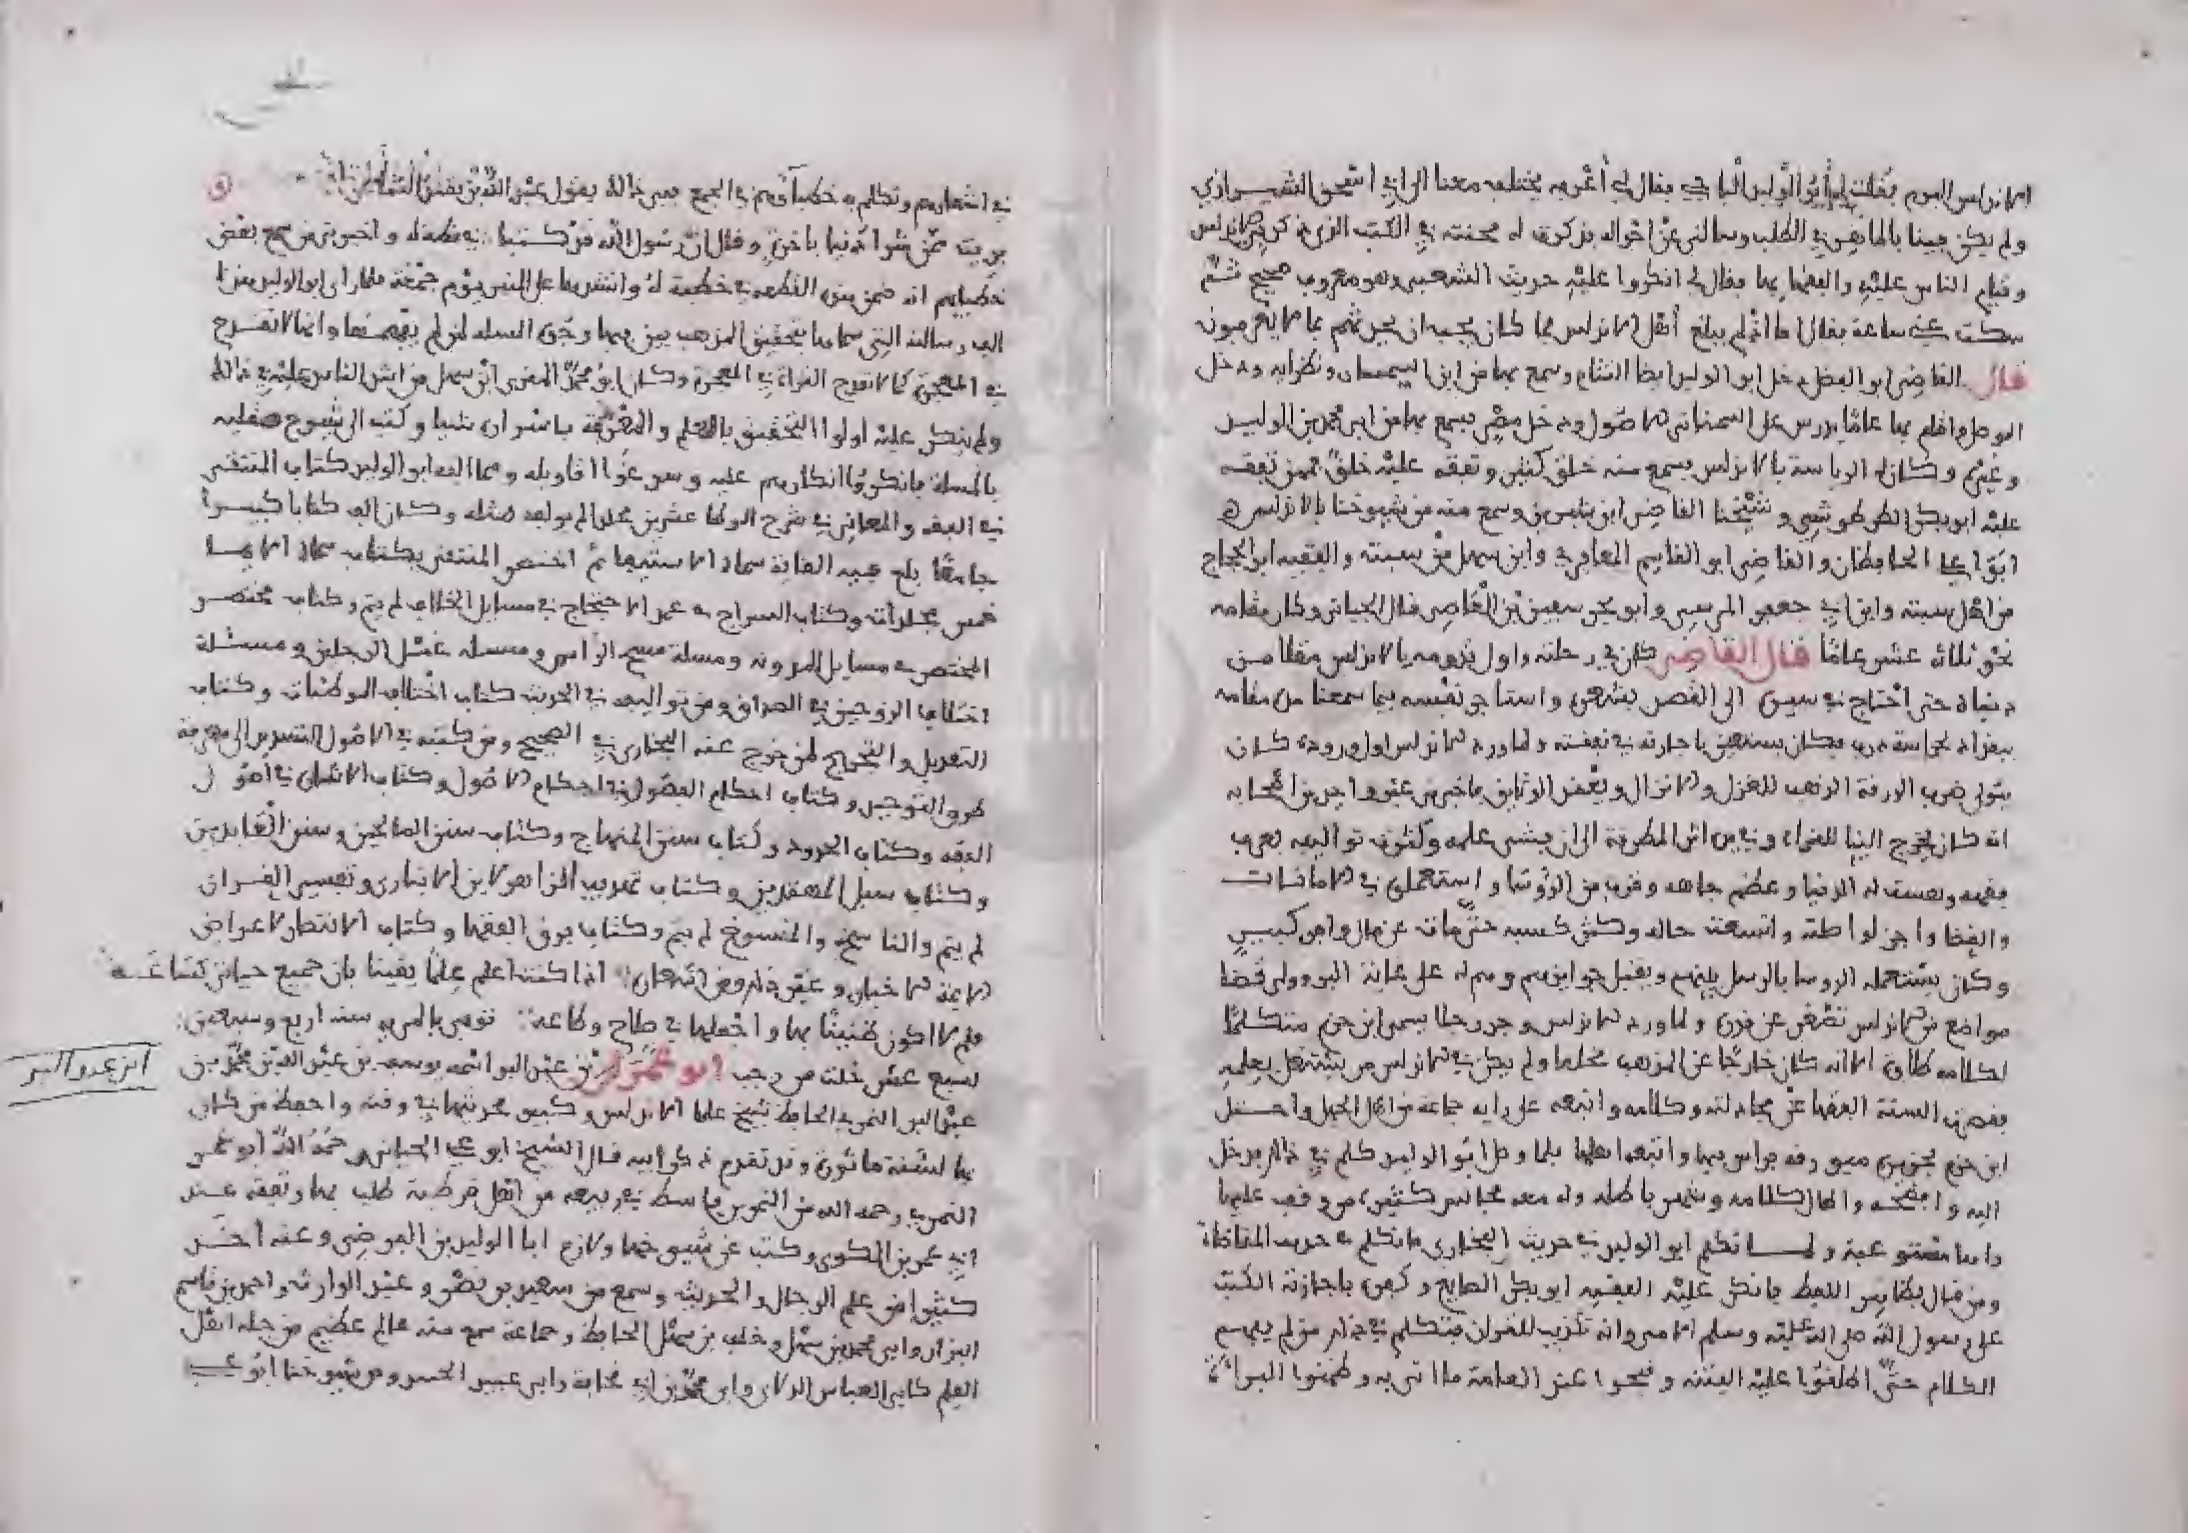 الاندلس اليوم فقلت له أبو الوليد الباجي فقال لي أعرفه يختلف معنا الى ابي اسحق الشيرازي
ولم يكن فينا بالماهر في الطلب وسالني عن احواله فذكرت له محنته في الكتب الذي
وقيام الناس عليه والفقها بها فقال لي انكروا عليه حديث الشعبي وهو معروف صحيح ثم
سكت عني ساعة فقال ما اثم لم يبلغ أهل الاندلس مما كان يجب ان يحدثهم بما لا يعرفون
قال القاضي ابو الفضل دخل ابو الوليد ايضا الشام وسمع بها من ابن السمسار ونظرايه ودخل
الموصل واقام بها عاما يدرس على السمناني الاصول ودخل مصر فسمع بها من ابي محمد بن الوليد
وغيره وكانت له الرياسة بالاندلس فسمع منه خلق كثير وتفقه عليه خلق فممن تفقه
عليه ابو بكر الطرطوشي وشيخنا القاضي ابن شبرين وسمع منه من شيوخنا بالاندلس
ابوا علي الحافظان والقاضي ابو القاسم المعافري وابن سهل من سبتة والفقيه ابو الحجاج
من اهل سبته وابن ابي جعفر المرسي وابو بحر سفين بن العاصي قال الجياني وكان مقامه
نحو ثلاثة عشر عاما قال القاضي كان في رحلته واول قدومه بالاندلس مقلا من
دنياه حتى احتاج في سفره الى القصد بشعره واستاجر نفسه فيما سمعنا من مقامه
ببغداد لحراسة درب فكان يستعين باجارته في نفقته ولما ورد الاندلس اول وروده كان
يتولى ضرب الورقة الذهب للغزل والانزال ويعقد الوثايق فاخبرني غير واحد من اصحابه
انه كان يخرج الينا للقراءة وفي يده اثر المطرقة الى ان فشى علمه وكثرت تواليفه فعرف
بفهمه ونعمت له الدنيا وعظم جاهه وقرب من الرؤسا واستعملوه في الامانات
والقضا واجزلوا صلته واتسعت حاله وكثر كسبه حتى مات عن مال وافر كبير
وكان يستعمله الروسا بالرسل بينهم ويقبل جوايزهم وهم له على غاية البر وولي قضا
مواضع من الاندلس تصغر عن قدره ولما ورد الاندلس وجد رجلا يسمى ابن حزم متكلما
لكلامه طلاوة الا انه كان خارجا عن المذهب محلها ولم يكن في الاندلس من يشتغل بعلمه
فقصرت السنة الفقها عن مجادلته وكلامه واتبعه على رايه جماعة من اهل الجهل واحتل
ابن حزم بجزيرة ميورقه فراس فيها واتبعه اهلها فلما وصل ابو الوليد كلم في ذلك فدخل
اليه واحضحه واطال كلامه وشهر باطله وله معه مجالس كثيرة من وقف عليها
راها مقنوعية ولما تكلم ابو الوليد في حديث البخاري ما تكلم حديث المقاضاة
ومن قال بظاهر اللفظ فانكر عليه الفقيه ابو بكر الصايغ وكفره باجازته الكتب
على رسول الله صلى الله عليه وسلم الامي وانه تكذيب للقران فتكلم في ذلك من لم يفهم
الكلام حتى اطلقوا عليه الفتنة وقبحوا عند العامة ما اتى به وضمنوا البراة
في اشعارهم وتكلم به خطباؤهم في الجمع ففي ذلك يقول
بريت ممن شرا دنيا باخرة وقال ان رسول الله قد كتبا في قطعه واخبرني من سمع بعض
خطبايهم انه ضمن هذه القطعه في خطبة له وانشدها على المنبر يوم جمعة فلما راى ابو الوليد هذا
الف رسالته التي سماها بتحقيق المذهب بين فيها وجوه المسله لمن لم يفهمها وانها لا تقدح
في المعجزة كما لا تقدح القراءة في المعجزة وكان ابو محمد المقرى ابن سهل من اشد الناس عليه في ذلك
ولم ينكر عليه اولوا التحقيق بالعلم والمعرفة باسراره شيا وكتب الى شيوخ صقليه
بالمسلة فانكروا انكارهم عليه وسوغوا اقاويله ومما الفه ابو الوليد كتاب المنتقى
في الفقه والمعاني في شرح الموطا عشرين مجلدا لم يولف مثله وكان الف كتابا كبيرا
جامعا بلغ فيه الغاية سماه الاستيفا ثم اختصر المنتقى بكتاب سماه الايما
خمس مجلدات وكتاب السراج عمل الاحتجاج في مسايل الخلاف لم يتم وكتاب مختصر
المختصر مسايل المدونه ومسلة مسح الراس ومسله غسل الرجلين ومسئلة
اختلاف الزوجين في الصداق ومن تواليفه في الحديث كتاب اختلاف الموطئات وكتاب
التعديل والتجريح لمن خرج عنه البخاري في الصحيح ومن كتبه في الاصول التسديد الى معرفة
طرق التوحيد وكتاب احكام الفصول في احكام الاصول وكتاب الاشارة في اصول
الفقه وكتاب الحدود وكتاب سنن المنهاج وكتاب سنن الصالحين وسنن العابدين
وكتاب سبل المهتدين وكتاب تهذيب الزاهر لابن الانباري وتفسير القران
لم يتم والناسخ والمنسوخ لم يتم وكتاب فرق الفقها وكتاب الانتصار لاعراض
الايمة الاخيار وغير ذلك ومن اشعاره اذا كنت اعلم علما يقينا بان جميع حياتي كساعة
فلم لا اكون ضنينا بها واجعلها في صلاح وطاعه توفي بالمريه سنة اربع وسبعين
لسبع عشر خلت من رجب ابو عمر بن عبد البر اسمه يوسف بن عبد الله بن محمد بن
ابن عبد البر
عبد البر النمري الحافظ شيخ علما الاندلس وكبير محدثيها في وقته واحفظ من كان
بها لسنة ماثورة وقد تقدم ذكر ابيه قال الشيخ ابو علي الجياني رحمه الله ابو عمر
النمري رحمه الله من النمر بن قاسط في ربيعه من اهل قرطبة طلب بها وتفقه عند
ابي عمر بن المكوي وكتب عن شيوخها ولازم ابا الوليد بن الفرضي وعنه اخذ
كثيرا من علم الرجال والحديث وسمع من سعيد بن نصر وعبد الوارث واحمد بن قاسم
البزار وابي محمد بن اسد وخلف بن سهل الحافظ وجماعة سمع منه عالم عظيم من جله اهل
العلم كابي العباس الدلاى وابي محمد بن ابي قحافة وابي عبيد الحسن ومن شيوخنا ابو علي